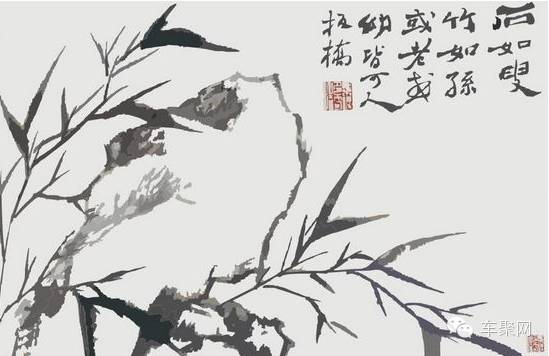 石如叟
竹如孫
或老或
幼皆可人
板橋
车聚网